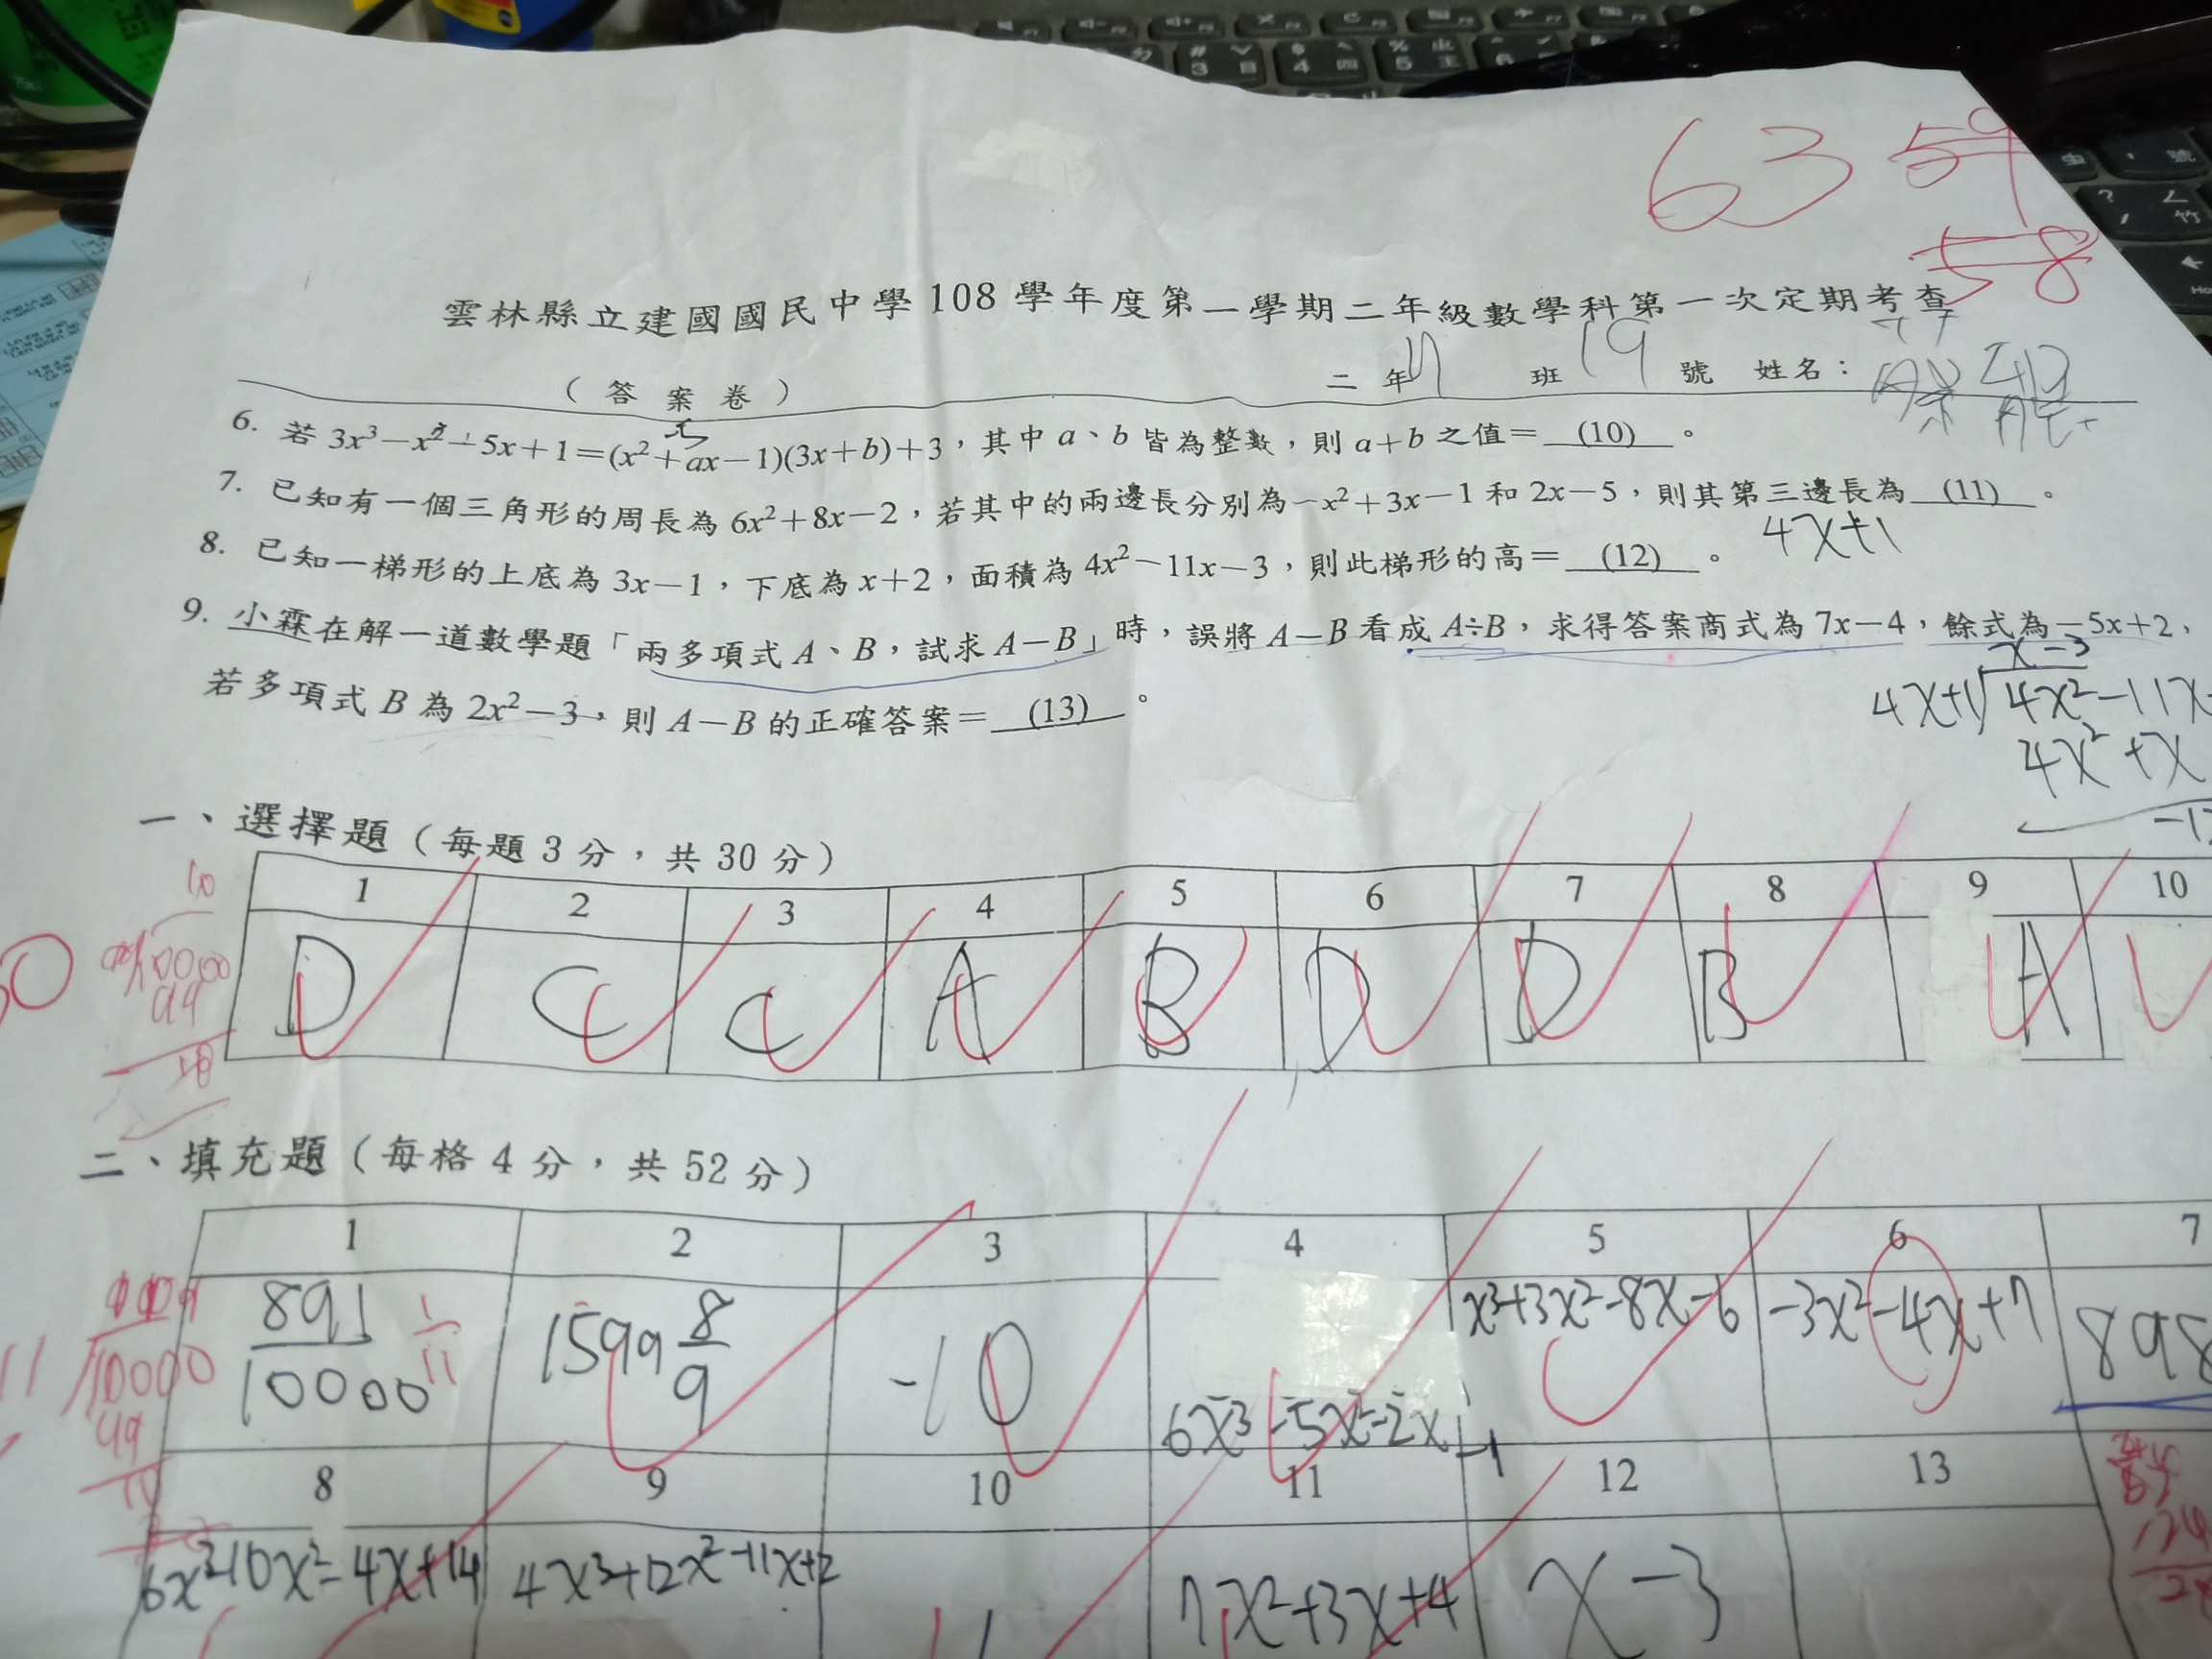 63 59
58
雲林縣立建國國民中學108學年度第一學期二年級數學科第一次定期考查
(答案卷) 二年 班 19 號 姓名:
6. 若 3x³－x²－5x＋1＝(x²＋ax－1)(3x＋b)＋3，其中 a、b 皆為整數，則 a＋b 之值＝ (10) 。
7. 已知有一個三角形的周長為 6x²＋8x－2，若其中的兩邊長分別為－x²＋3x－1 和 2x－5，則其第三邊長為 (11) 。
4x+1
8. 已知一梯形的上底為 3x－1，下底為 x＋2，面積為 4x²－11x－3，則此梯形的高＝ (12) 。
9. 小霖在解一道數學題「兩多項式 A、B，試求 A－B」時，誤將 A－B 看成 A÷B，求得答案商式為 7x－4，餘式為－5x＋2，
若多項式 B 為 2x²－3，則 A－B 的正確答案＝ (13) 。
x-3
4x+1 4x²-11x
4x²+x
一、選擇題（每題 3 分，共 30 分）
1 2 3 4 5 6 7 8 9 10
D C C A B D D B A
二、填充題（每格 4 分，共 52 分）
1 2 3 4 5 6 7
891/10000 1599 8/9 -10 6x³-5x²-2x+1 x³+3x²-8x-6 -3x²-4x+7 898
8 9 10 11 12 13
6x³-10x²-4x+14 4x³+12x²-11x+2 7x²+3x+4 x-3